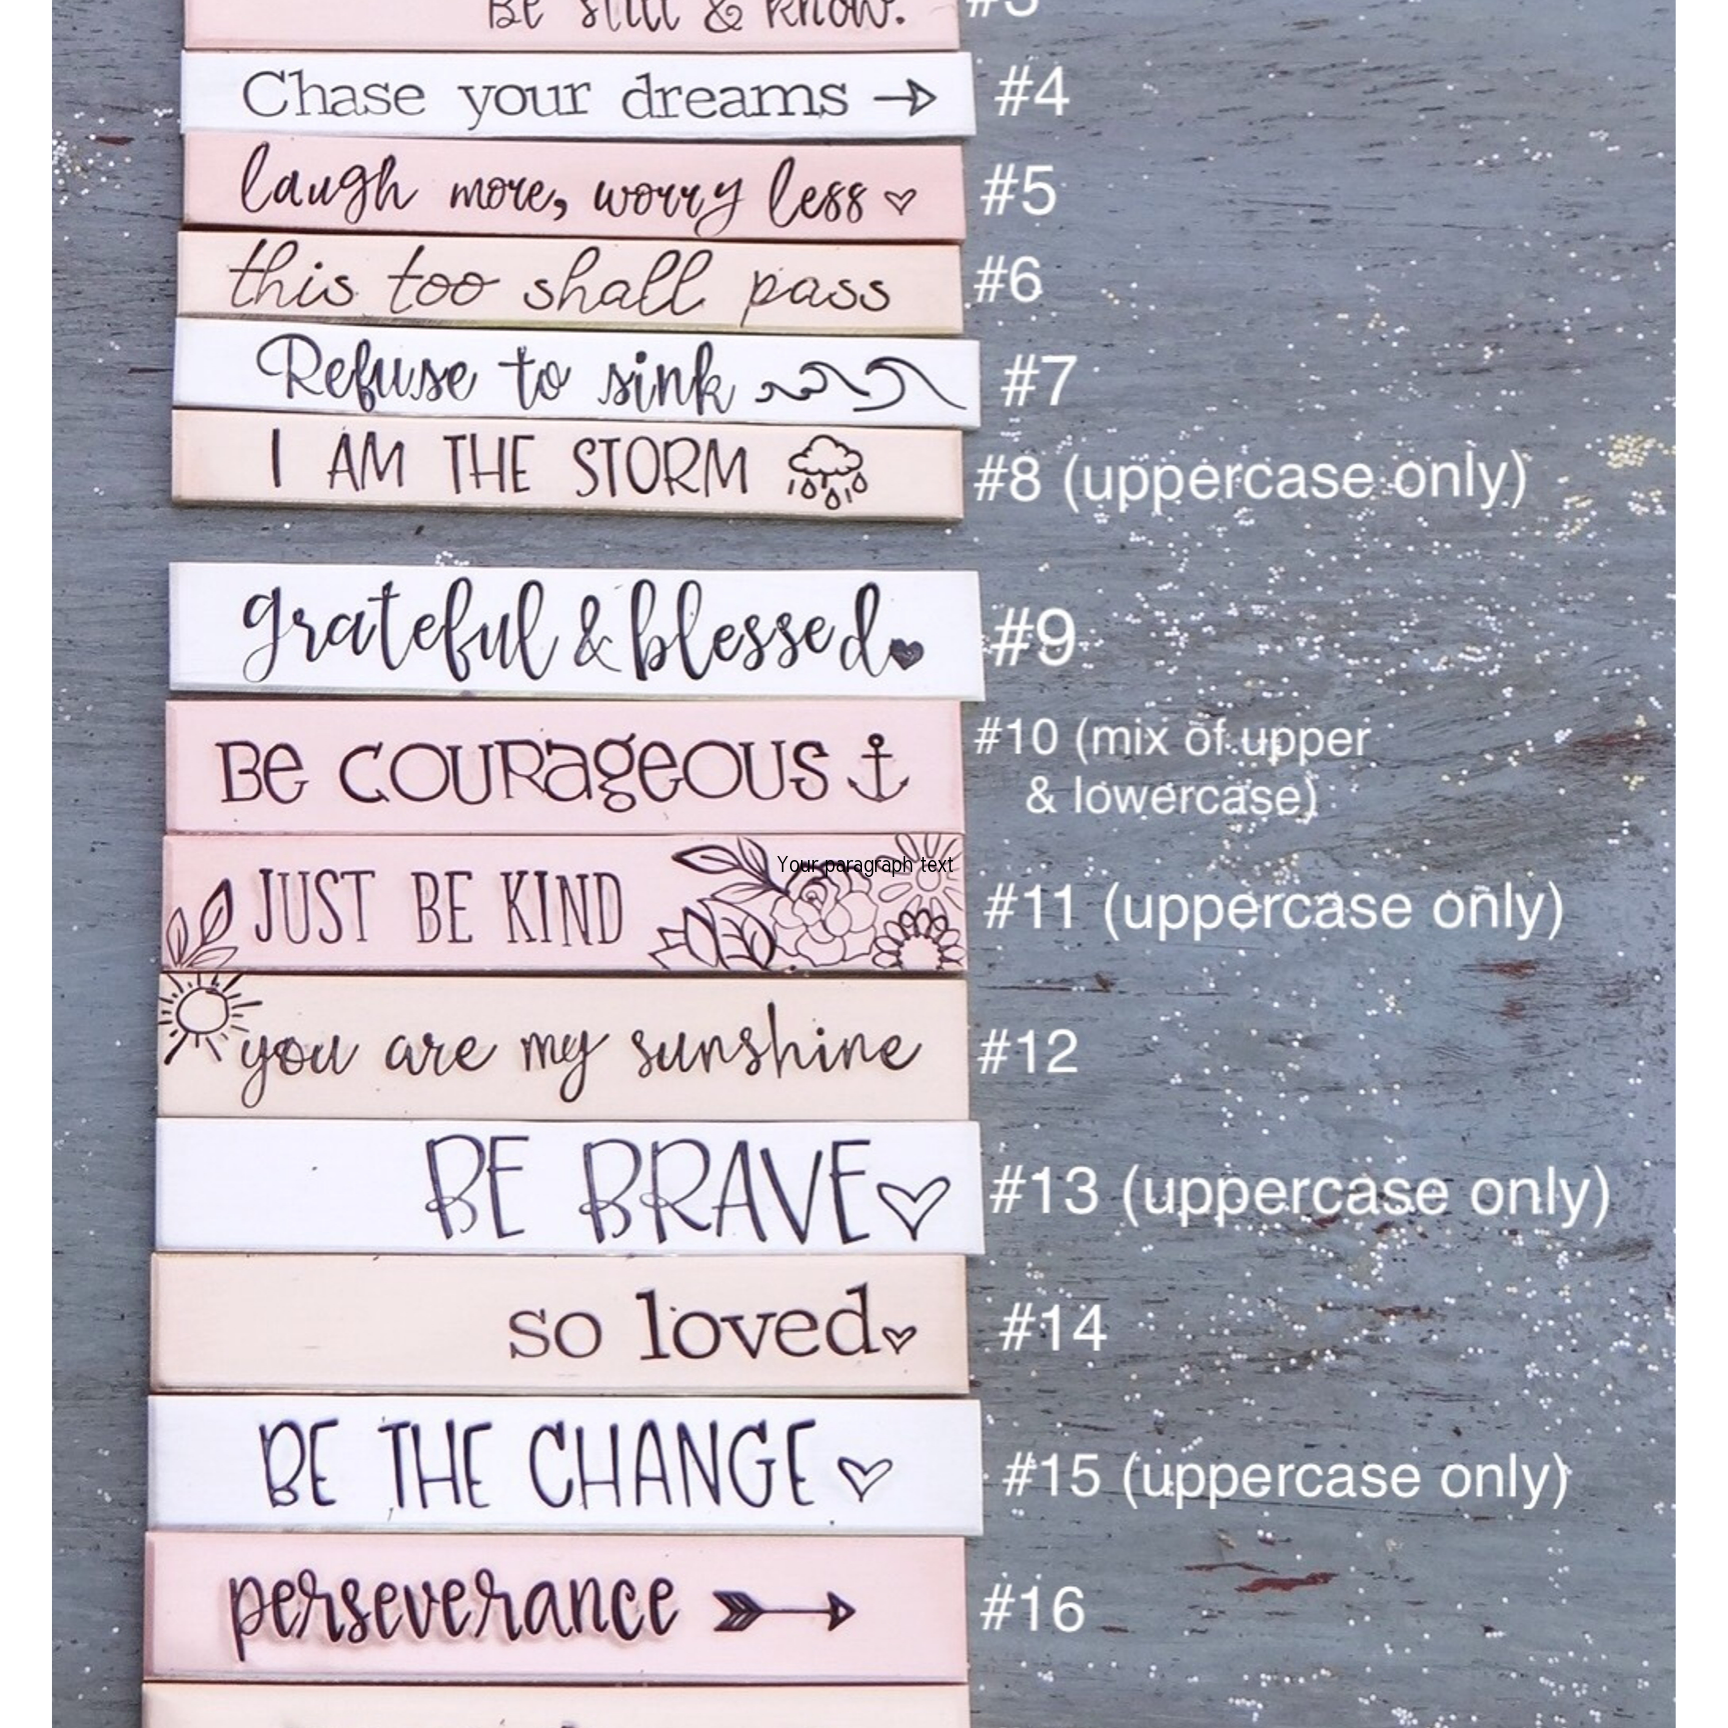 Be still & know.
#3
Chase your dreams
#4
laugh more, worry less
#5
this too shall pass
#6
Refuse to sink
#7
I AM THE STORM
#8 (uppercase only)
grateful & blessed
#9
Be COURageous
#10 (mix of upper
& lowercase)
Your paragraph text
JUST BE KIND
#11 (uppercase only)
you are my sunshine
#12
BE BRAVE
#13 (uppercase only)
so loved
#14
BE THE CHANGE
#15 (uppercase only)
perseverance
#16